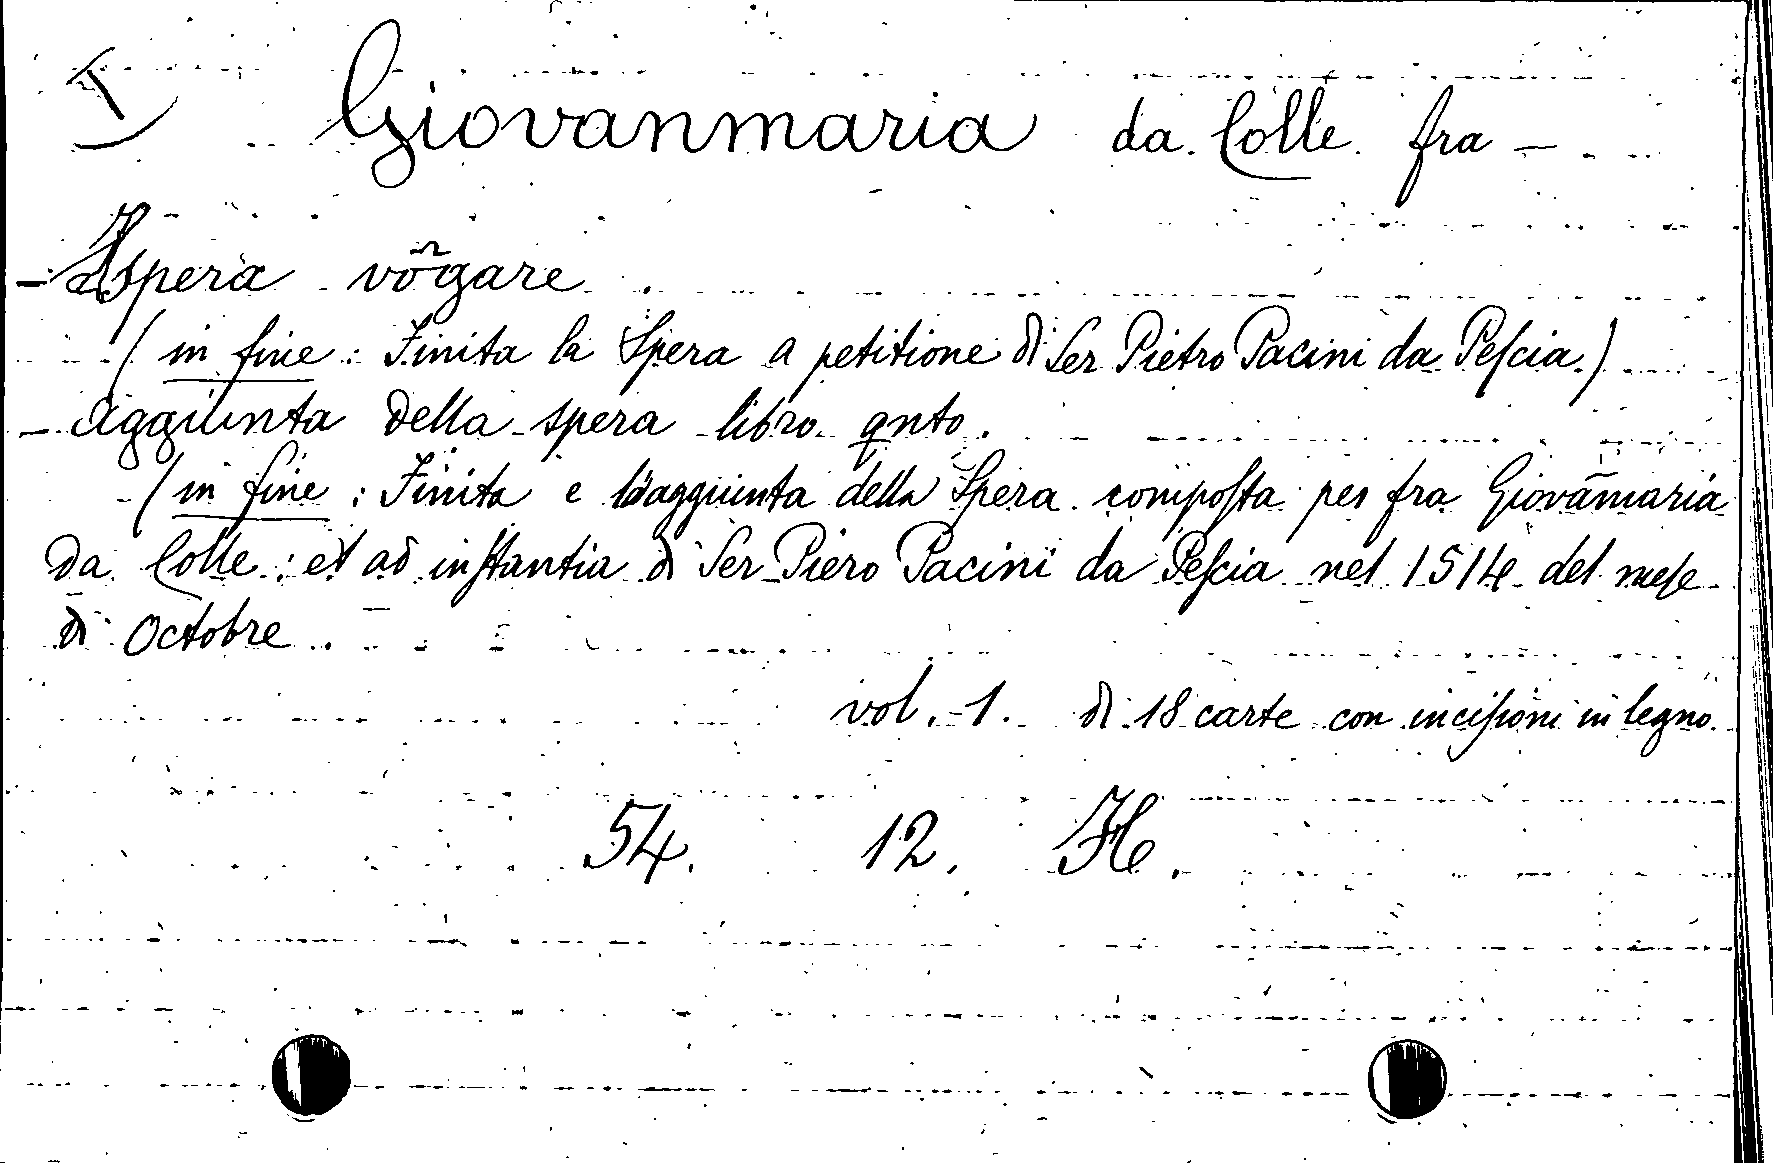 Giovanmaria da Colle fra -
- Spera võgare
( in fine : Finita la Spera a petitione di Ser Pietro Pacini da Peſcia.)
- aggiunta della spera libro qnto.
( in fine : Finita e laaggiunta della Spera compoſta per fra Giovãmaria
da Colle : et ad inſtantia di Ser Piero Pacini da Peſcia nel 1514 del meſe
di Octobre.
vol. 1. di 18 carte con inciſioni in legno.
54. 12. H.